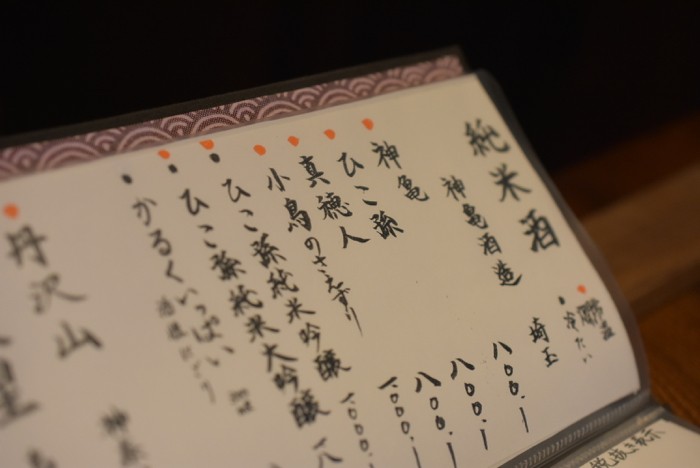 純米酒
神亀酒造
埼玉
冷たい
神亀
八〇〇.ー
ひこ孫
八〇〇.ー
真穂人
八〇〇.ー
小鳥のさえずり
一〇〇〇.
ひこ孫純米吟醸
一〇〇〇.
ひこ孫純米大吟醸
一八
かるくいっぱい
活性にごり
丹沢山
神奈